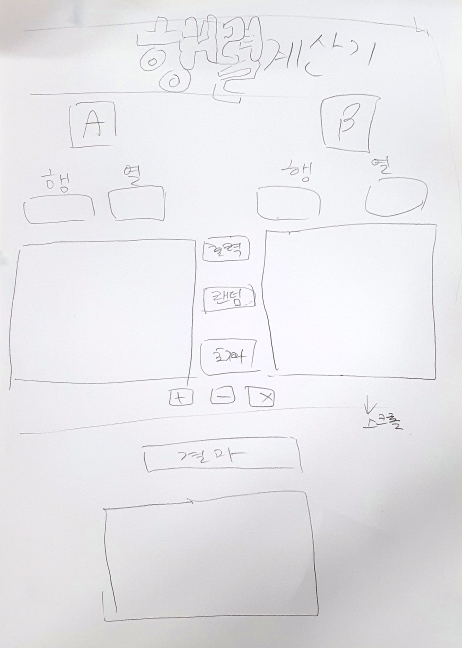 행렬 계산기
A B
행 열 행 열
입력
랜덤
초기화
+ - ×
↓
스크롤
결과